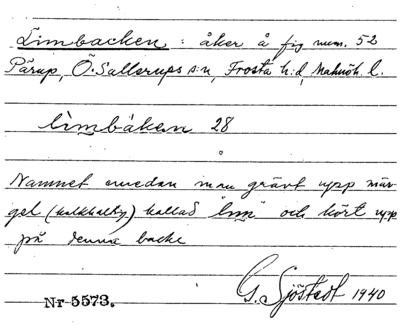 Limbacken : åker å fig num. 52
Pärup, Ö. Sallerups s:n, Frosta h:d, Malmöh. l.
limbáken 28
Namnet emedan man grävt upp mär-
gel (kalkhalty) kallad "lim" och kört upp
på denna backe
G. Sjöstedt 1940
Nr 5573.